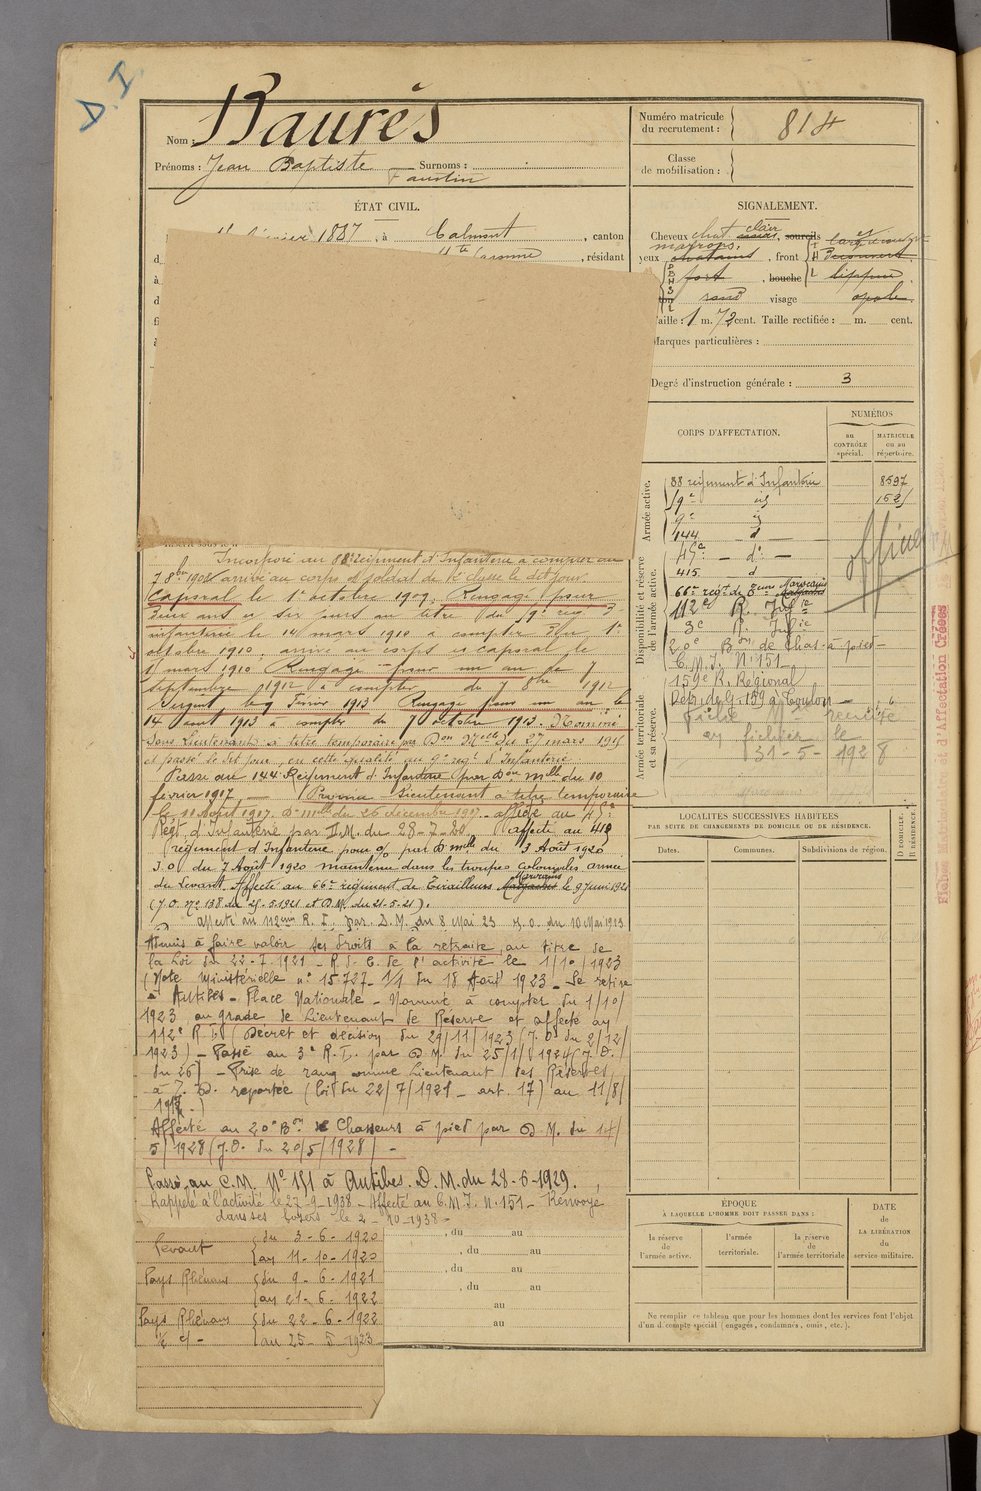 D. I
Nom : Baurès
Prénoms : Jean Baptiste Faustin Surnoms :
Numéro matricule
du recrutement : 814
Classe
de mobilisation :
ÉTAT CIVIL.
1887, à Calmont, canton
Hte Garonne, résidant
SIGNALEMENT.
Cheveux chat. clair, sourcils
marrons.
yeux chatains, front
fort, bouche lippue
rond visage ovale
Taille : 1 m. 72 cent. Taille rectifiée : m. cent.
Marques particulières :
Degré d'instruction générale : 3
CORPS D'AFFECTATION.
NUMÉROS
au
CONTRÔLE
spécial.
MATRICULE
ou au
répertoire.
Armée active.
Disponibilité et réserve
de l'armée active.
Armée territoriale
et sa réserve.
88 régiment d'Infanterie 8597
9e id
9e id
144 d
45e - do -
415 d
66e régt de Tirrs Marocains
112e R. Infie
3e R. Infie
20e Bon de Chas. à pied
C. M. I. N° 151
159e R. Régional
Rég. 159 à Toulon
officier
fichier le
31-5-1928
Incorporé au 88e régiment d'Infanterie à compter du
7 8bre 1908 arrivé au corps et soldat de 2e classe le dit jour.
Caporal le 1er octobre 1909. Rengagé pour
deux ans et six jours au titre du 9e régt
infanterie le 14 mars 1910 à compter du 1er
octobre 1910, arrivé au corps et caporal le
mars 1910. Rengagé pour un an le 7
septembre 1912 à compter du 7 8bre 1912
Sergent le 9 Février 1913 Rengagé pour un an le
14 août 1913 à compter du 7 octobre 1913. Nommé
Sous Lieutenant à titre temporaire par Don Melle du 27 mars 1915
et passé le dit jour, en cette qualité au 9e régt d'Infanterie
Passé au 144 Régiment d'Infanterie par Don Mlle du 10
février 1917. Promu Lieutenant à titre temporaire
le 11 Août 1917. Dn Mlle du 26 décembre 1917. affecté au 45e
Régt d'Infanterie par D.M. du 28-7-20 affecté au 415
régiment d'Infanterie par D Mlle du 3 Août 1920
J.O. du 7 Août 1920 maintenu dans les troupes coloniales armée
du Levant. Affecté au 66e régiment de Tirailleurs Marocains le 9 juin 1921
(J.O. N° 138 du 25-5-1921 et D.M. du 21-5-21).
affecté au 112ème R. I. par D.M. du 8 Mai 23 J.O. du 10 Mai 1923
Admis à faire valoir ses droits à la retraite, au titre de
la Loi du 22-7-1921 - R. d. C. de l'activité le 1/10/1923
(Note Ministérielle n° 15.727-1/1 du 18 Août 1923 - Se retire
à Antibes - Place Nationale - Nommé à compter du 1/10/
1923 au grade de Lieutenant de Réserve et affecté au
112e R.I. (Décret et décision du 29/11/1923 (J.O. du 2/12/
1923) - Passé au 3e R.I. par D.M. du 25/1/1924 (J.O.
du 26) - Prise de rang comme Lieutenant de Réserve,
à T.D. reportée (Loi du 22/7/1921 - art. 17) au 11/8/
Affecté au 20e Bon de Chasseurs à pied par D.M. du 14/
5/1928 (J.O. du 20/5/1928) -
Passé au C.M. N° 151 à Antibes. D.M. du 28-6-1929.
Rappelé à l'activité le 27-9-1938 - Affecté au C.M.I. N. 151 - Renvoyé
dans ses foyers le 2-10-1938 -
Levant du 3-6-1920
au 11-10-1920
Pays Rhénans du 9-6-1921
au 21-6-1922
Pays Rhénans du 22-6-1922
au 25-5-1923
, du au
, du au
, du au
, du au
au
au
LOCALITÉS SUCCESSIVES HABITÉES
PAR SUITE DE CHANGEMENTS DE DOMICILE OU DE RÉSIDENCE.
Dates.
Communes.
Subdivisions de région.
D DOMICILE.
R RÉSIDENCE.
ÉPOQUE
À LAQUELLE L'HOMME DOIT PASSER DANS :
la réserve
de
l'armée active.
l'armée
territoriale.
la réserve
de
l'armée territoriale
DATE
de
LA LIBÉRATION
du
service militaire.
Ne remplir ce tableau que pour les hommes dont les services font l'objet
d'un compte spécial (engagés, condamnés, omis, etc.).
Fiches et d'Affectation Créées